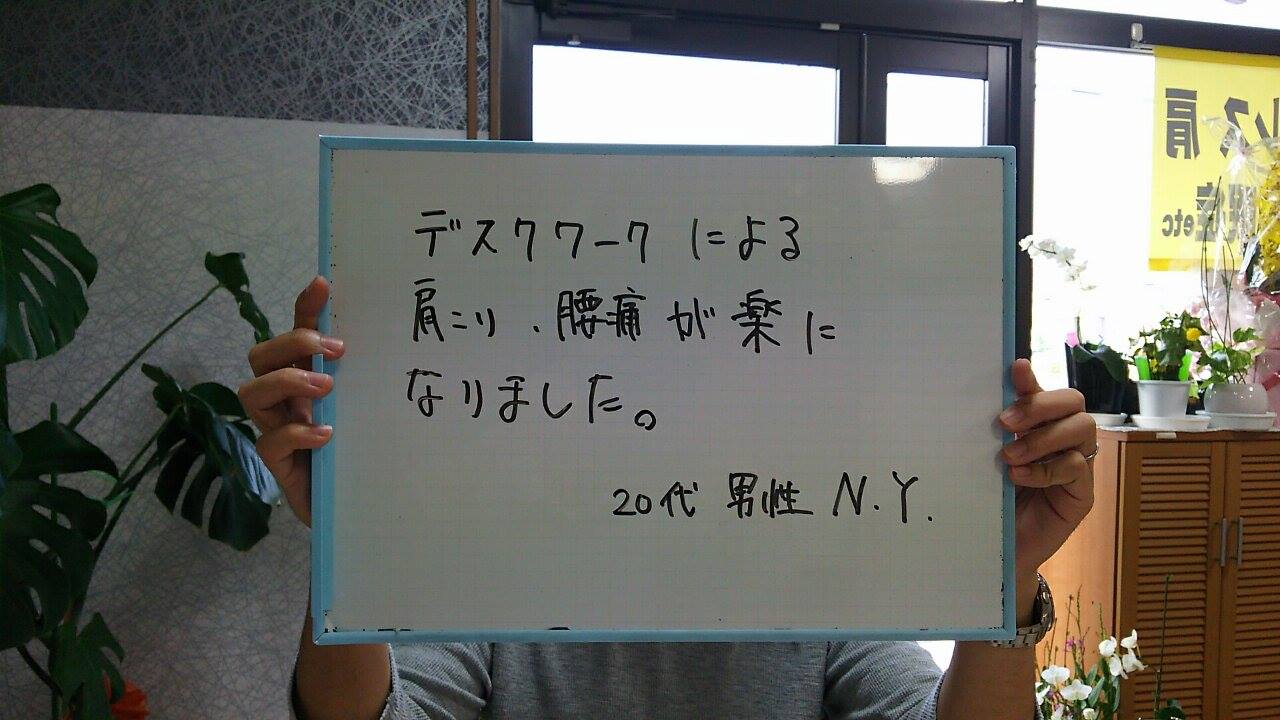 デスクワークによる
肩こり、腰痛が楽に
なりました。
20代 男性 N.Y.
肩
etc